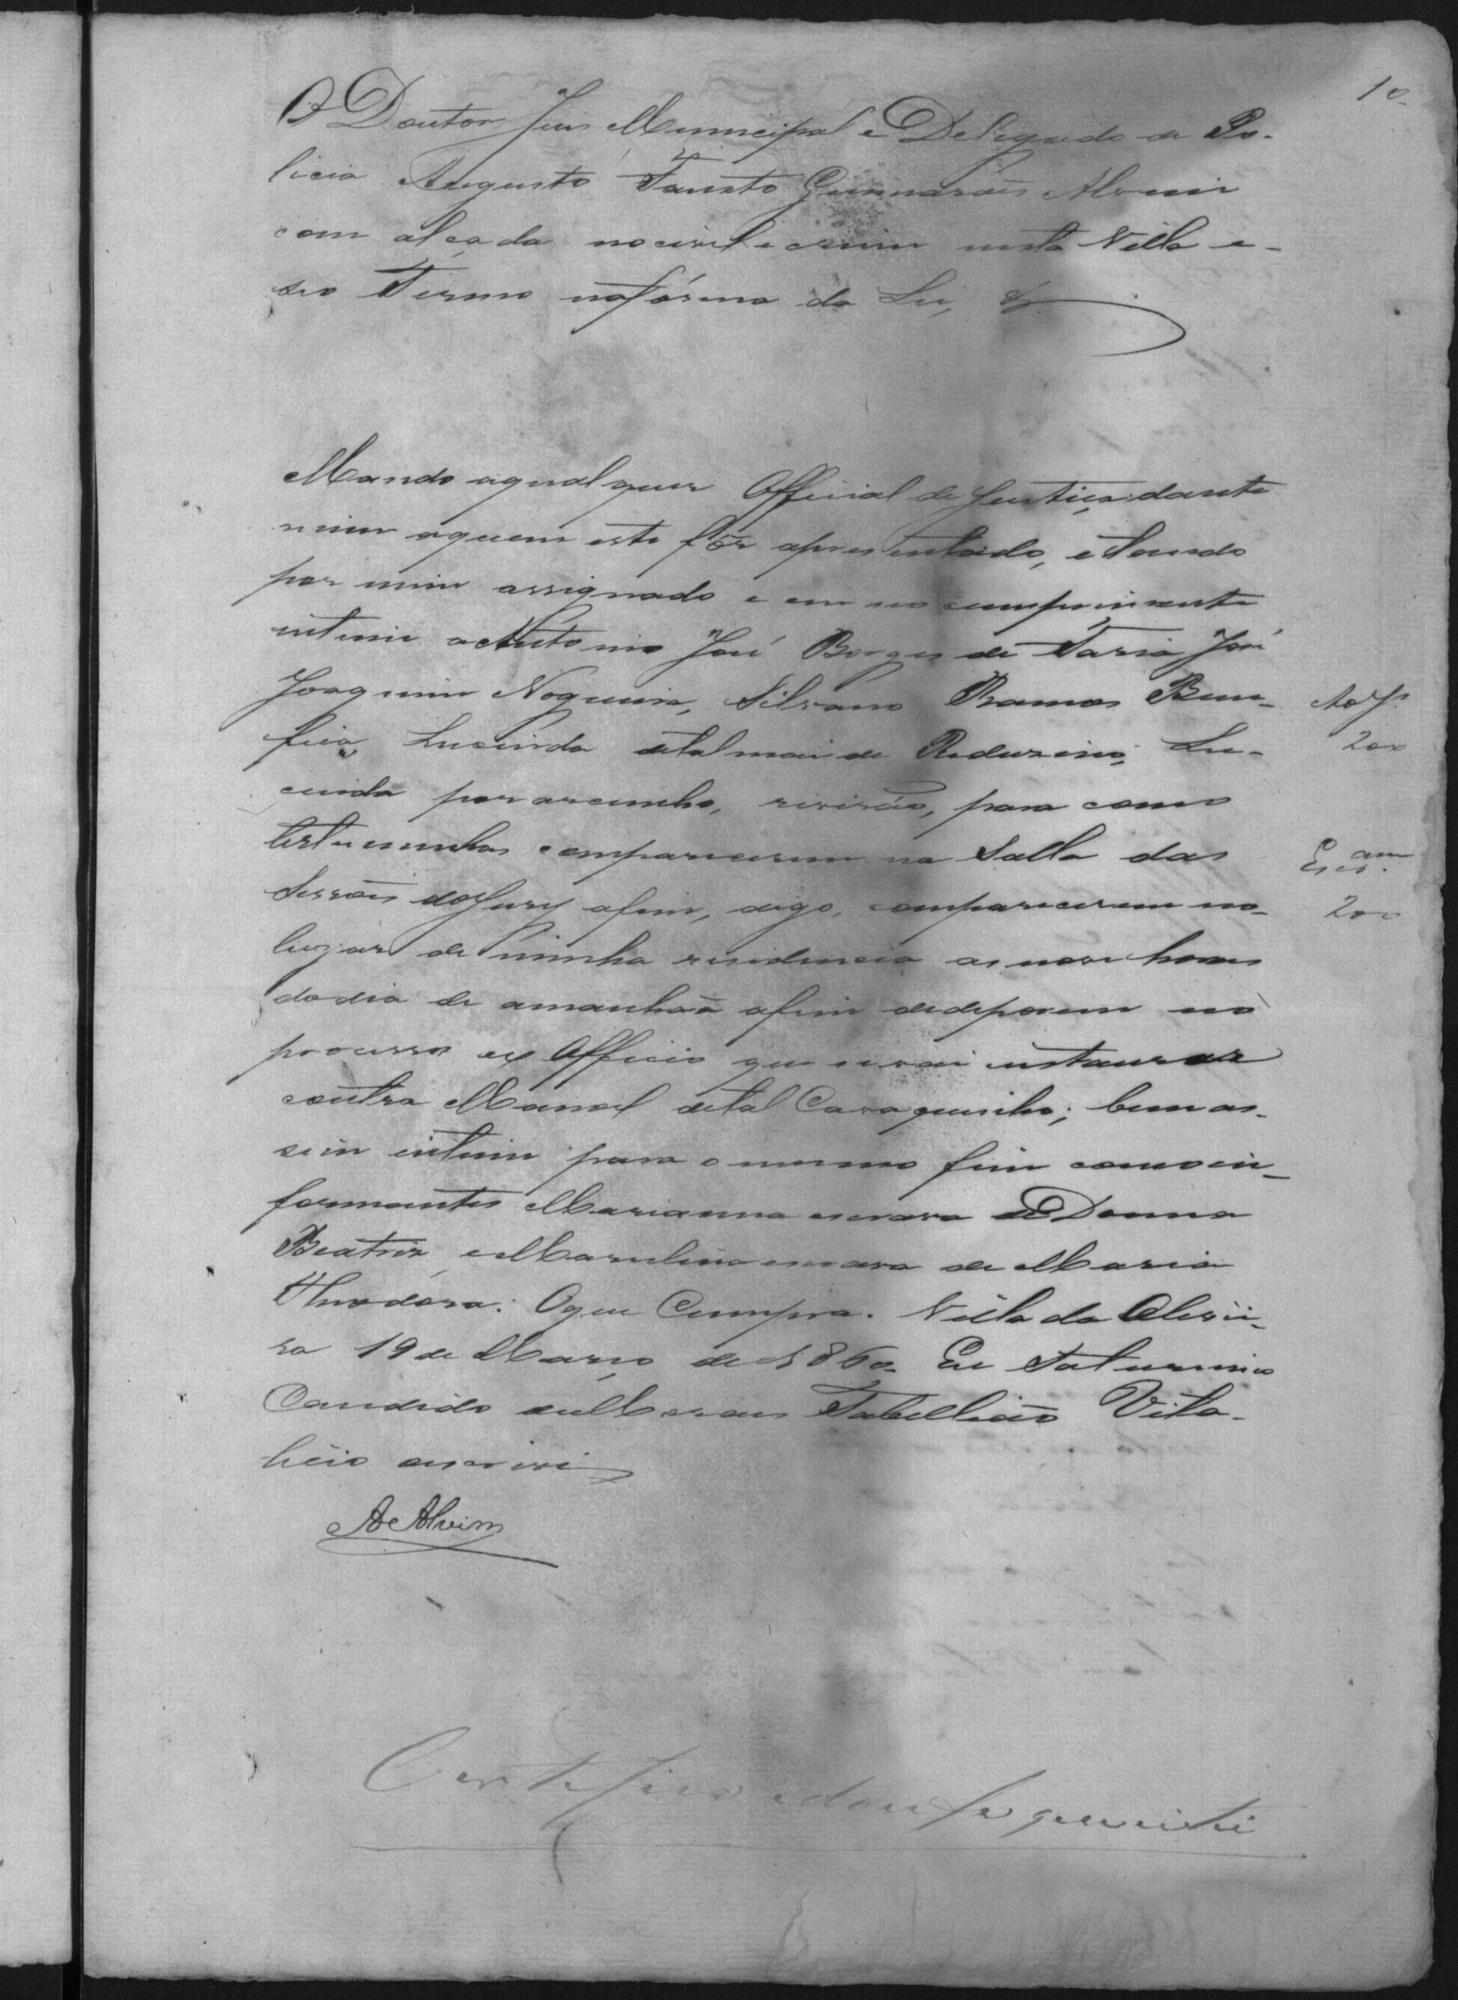 10
O Doutor Juis Municipal e Delegado de Po-
licia Augusto Fausto Guimarães Alvim
com alçada no civel e crime nesta Villa e
seo Termo na fórma da Lei, &
Mando a qualquer Official de Justiça dante
mim a quem este fôr apresentado, estando
por mim assignado e em seo cumprimento
intime a Antonio José Borges de Faria José
Joaquim Nogueira, Silvano Ramos Bem-
fica, Lucinda de tal mai de Reduzino, Lu-
cinda por arcunha, para como
testemunhas comparecerem na Salla das
Sessões do Jury afim, digo, comparecerem no
lugar de minha residencia as nove horas
do dia de amanhãa afim de deporem no
processo ex Officio que se vai instaurar
contra Manoel de tal Cavaquinho; bem as-
sim intime para o mesmo fim como in-
formantes Marianna escrava de Donna
Beatriz, e Marcelina escrava de Maria
Theodóra. O que Cumpra. Villa da Olivei-
ra 19 de Março de 1860. Eu Saturnino
Candido de Moraes Tabellião Vita-
licio escrevi
A Alvim
Ao J.
200
200
Certefico e dou fe que citei